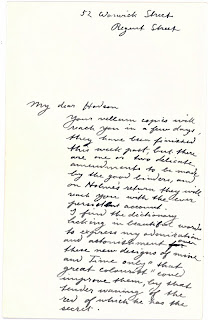 52 Warwick Street
Regent Street
My dear Hodson
Your vellum copies will
reach you in a few days,
they have been finished
this week past, but there
are one or two delicate
amendments to be made
by the good binders, and
on Holme's return they will
reach you with the ever
persistent account.
I find the dictionary
lacking in beautiful words
to express my admiration
and astonishment
these new designs of mine
and Time only "that
great colourist" could
improve them, by that
tender waning of the
red of which he has the
secret.